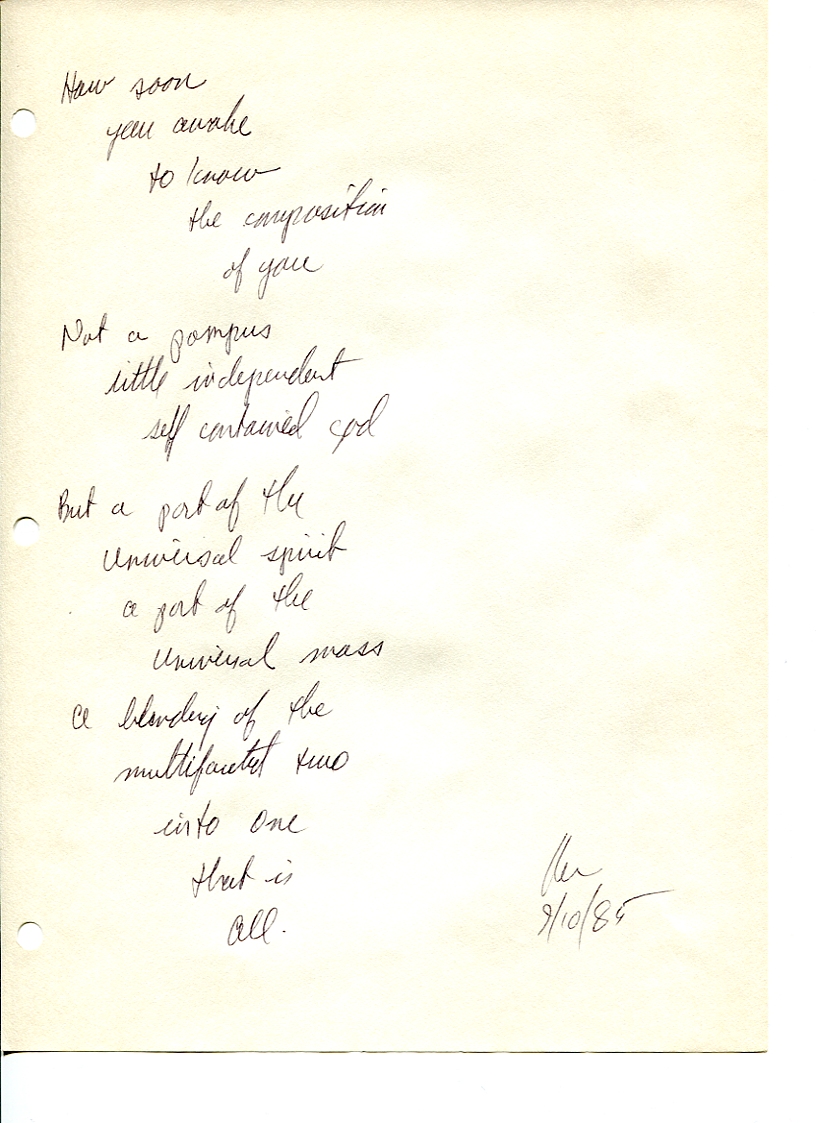 How soon
you awake
to know
the composition
of you
Not a pompus
little independent
self contained god
But a part of the
universal spirit
a part of the
universal mass
a blending of the
multifacitet two
into one
that is
all.
9/10/85